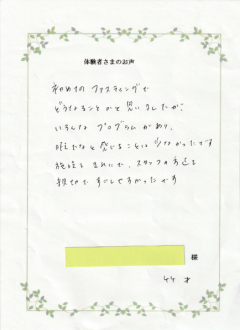 体験者さまのお声
初めての ファスティングで
どうなることかと思いましたが、
いろんな プログラムがあり、
暇だなと感じることは少なかったです
施設も きれいで、スタッフの方達も
親切で すごしやすかったです
様
44才